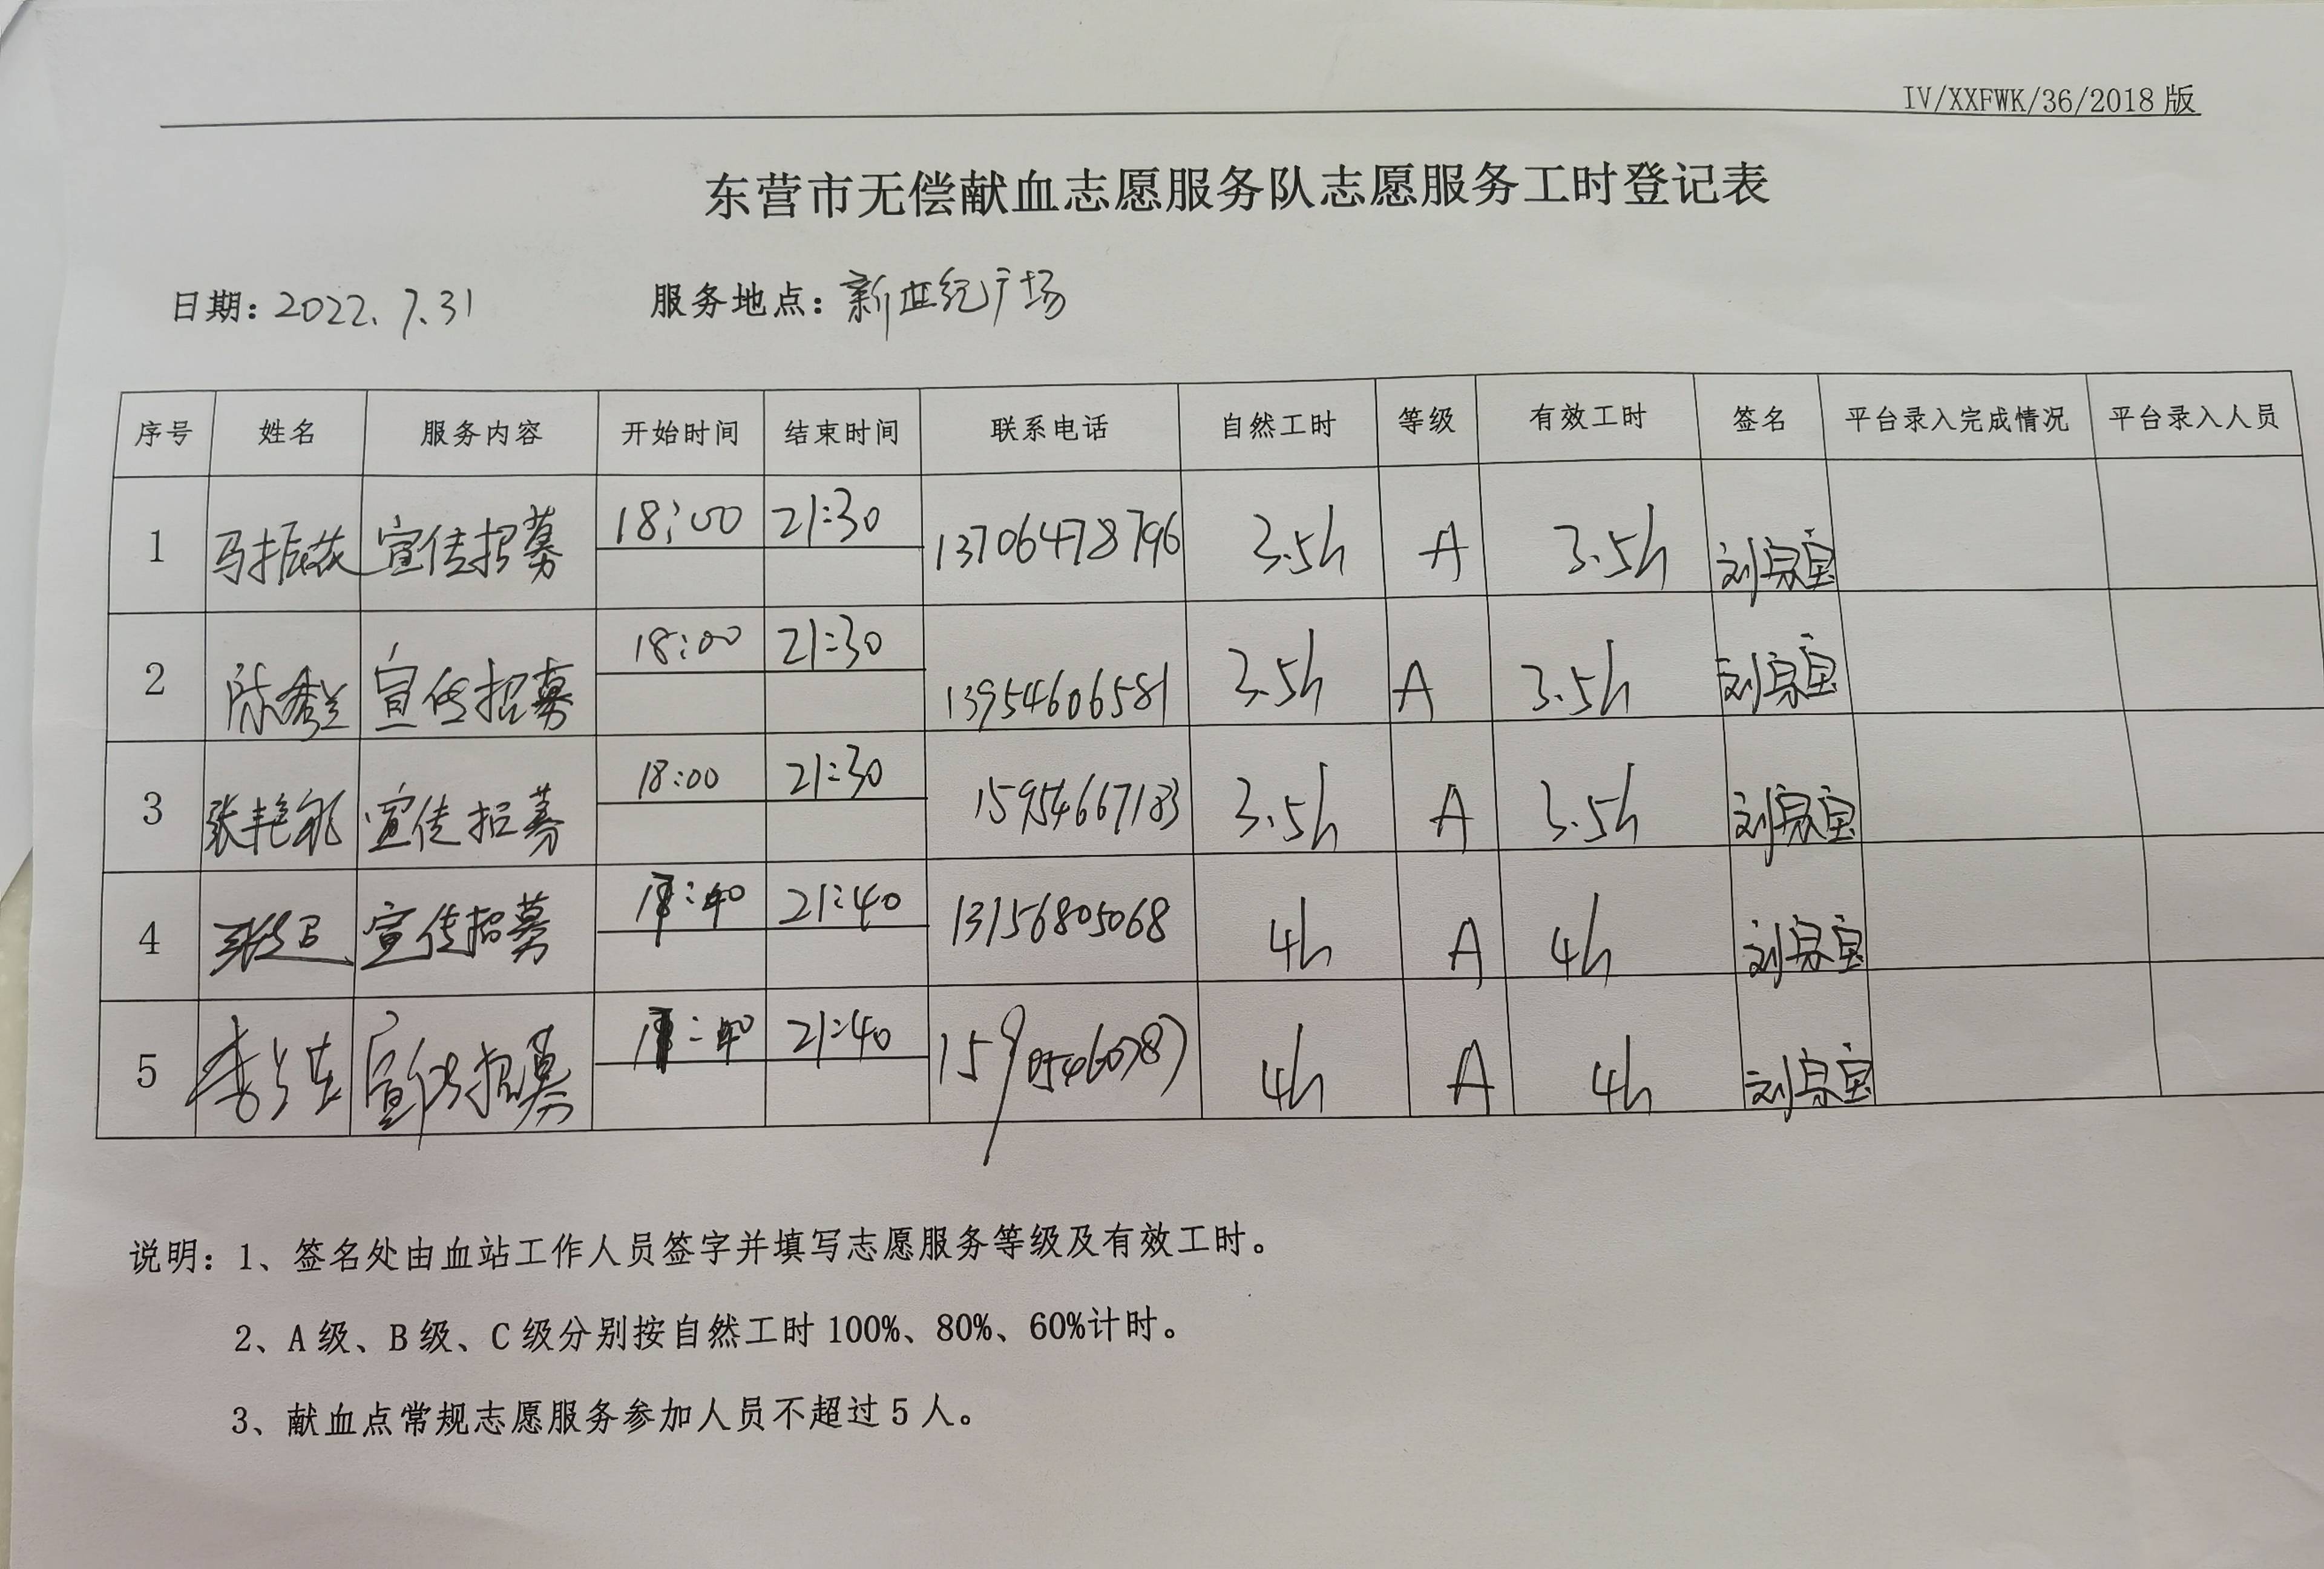 IV/XXFWK/36/2018 版
东营市无偿献血志愿服务队志愿服务工时登记表
日期: 2022.7.31 服务地点: 新世纪广场
序号 姓名 服务内容 开始时间 结束时间 联系电话 自然工时 等级 有效工时 签名 平台录入完成情况 平台录入人员
1 马振 宣传招募 18:00 21:30 13706478796 3.5h A 3.5h 刘宝
2 陈秀兰 宣传招募 18:00 21:30 13954606581 3.5h A 3.5h 刘宝
3 张艳 宣传招募 18:00 21:30 15954667183 3.5h A 3.5h 刘宝
4 张 宣传招募 17:40 21:40 13156805068 4h A 4h 刘宝
5 李 宣传招募 17:40 21:40 4h A 4h 刘宝
说明: 1、签名处由血站工作人员签字并填写志愿服务等级及有效工时。
2、A 级、B 级、C 级分别按自然工时 100%、80%、60%计时。
3、献血点常规志愿服务参加人员不超过 5 人。